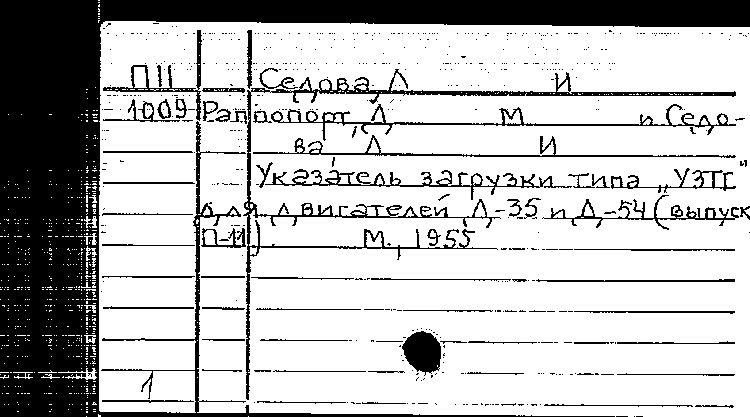 П11 Седова, Л И
1009 Раппопорт, Д М и Седо-
ва, Л И
Указатель загрузки типа „УЗТС"
для двигателей Д-35 и Д-54 (выпуск
П-11). М., 1955
1